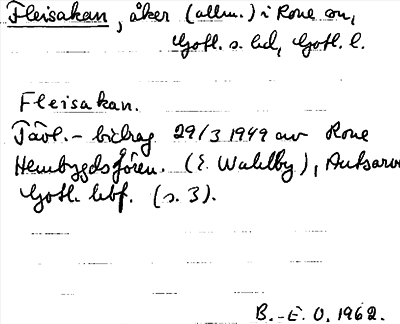 Fleisakan, åker (allm.) i Rone sn,
Gotl. s. hd, Gotl. l.
Fleisakan.
Tävl.-bidrag 29/3 1949 av Rone
Hembygdsfören. (E. Wahlby), Autsarve
Gotl. hbf. (s. 3).
B.-E. O. 1962.